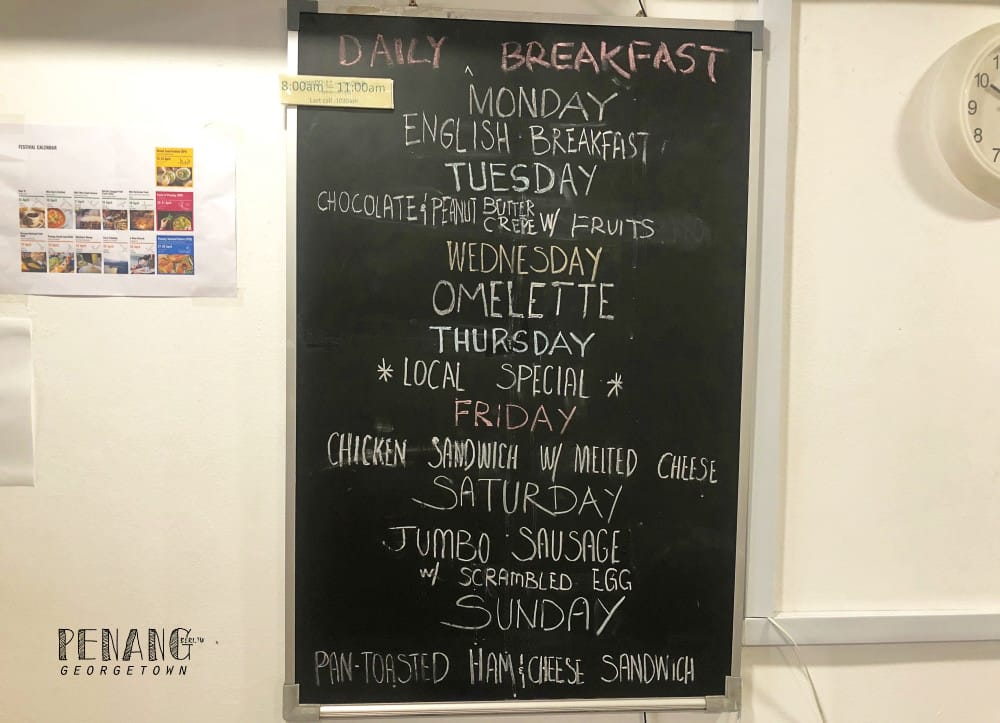 DAILY BREAKFAST
8:00am - 11:00am
Last call
MONDAY
ENGLISH BREAKFAST
TUESDAY
CHOCOLATE & PEANUT BUTTER
CREPE W/ FRUITS
WEDNESDAY
OMELETTE
THURSDAY
* LOCAL SPECIAL *
FRIDAY
CHICKEN SANDWICH W/ MELTED CHEESE
SATURDAY
JUMBO SAUSAGE
w/ SCRAMBLED EGG
SUNDAY
PAN-TOASTED HAM & CHEESE SANDWICH
FESTIVAL CALENDAR
10
9
8
7
PENANG
GEORGETOWN